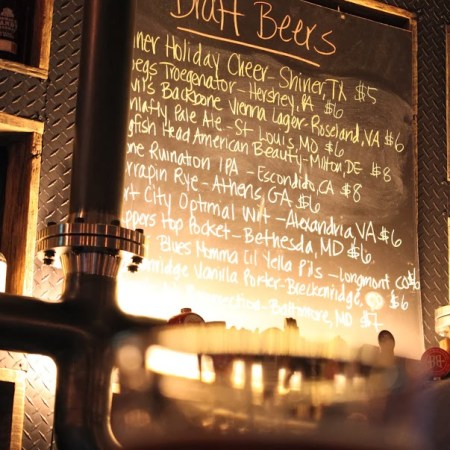 Draft Beers
iner Holiday Cheer - Shiner, TX $5
egs Troegenator - Hershey, PA $6
vils Backbone Vienna Lager - Roseland, VA $6
hlafly Pale Ale - St Louis, MO $6
gfish Head American Beauty - Milton, DE $8
one Ruination IPA - Escondido, CA $8
rrapin Rye - Athens, GA $6
rt City Optimal Wit - Alexandria, VA $6
ppers Hop Pocket - Bethesda, MD $6
Blues Momma Lil Yella Pils - Longmont CO $6
kenridge Vanilla Porter - Breckenridge, CO $6
Resurrection - Baltimore, MD $7